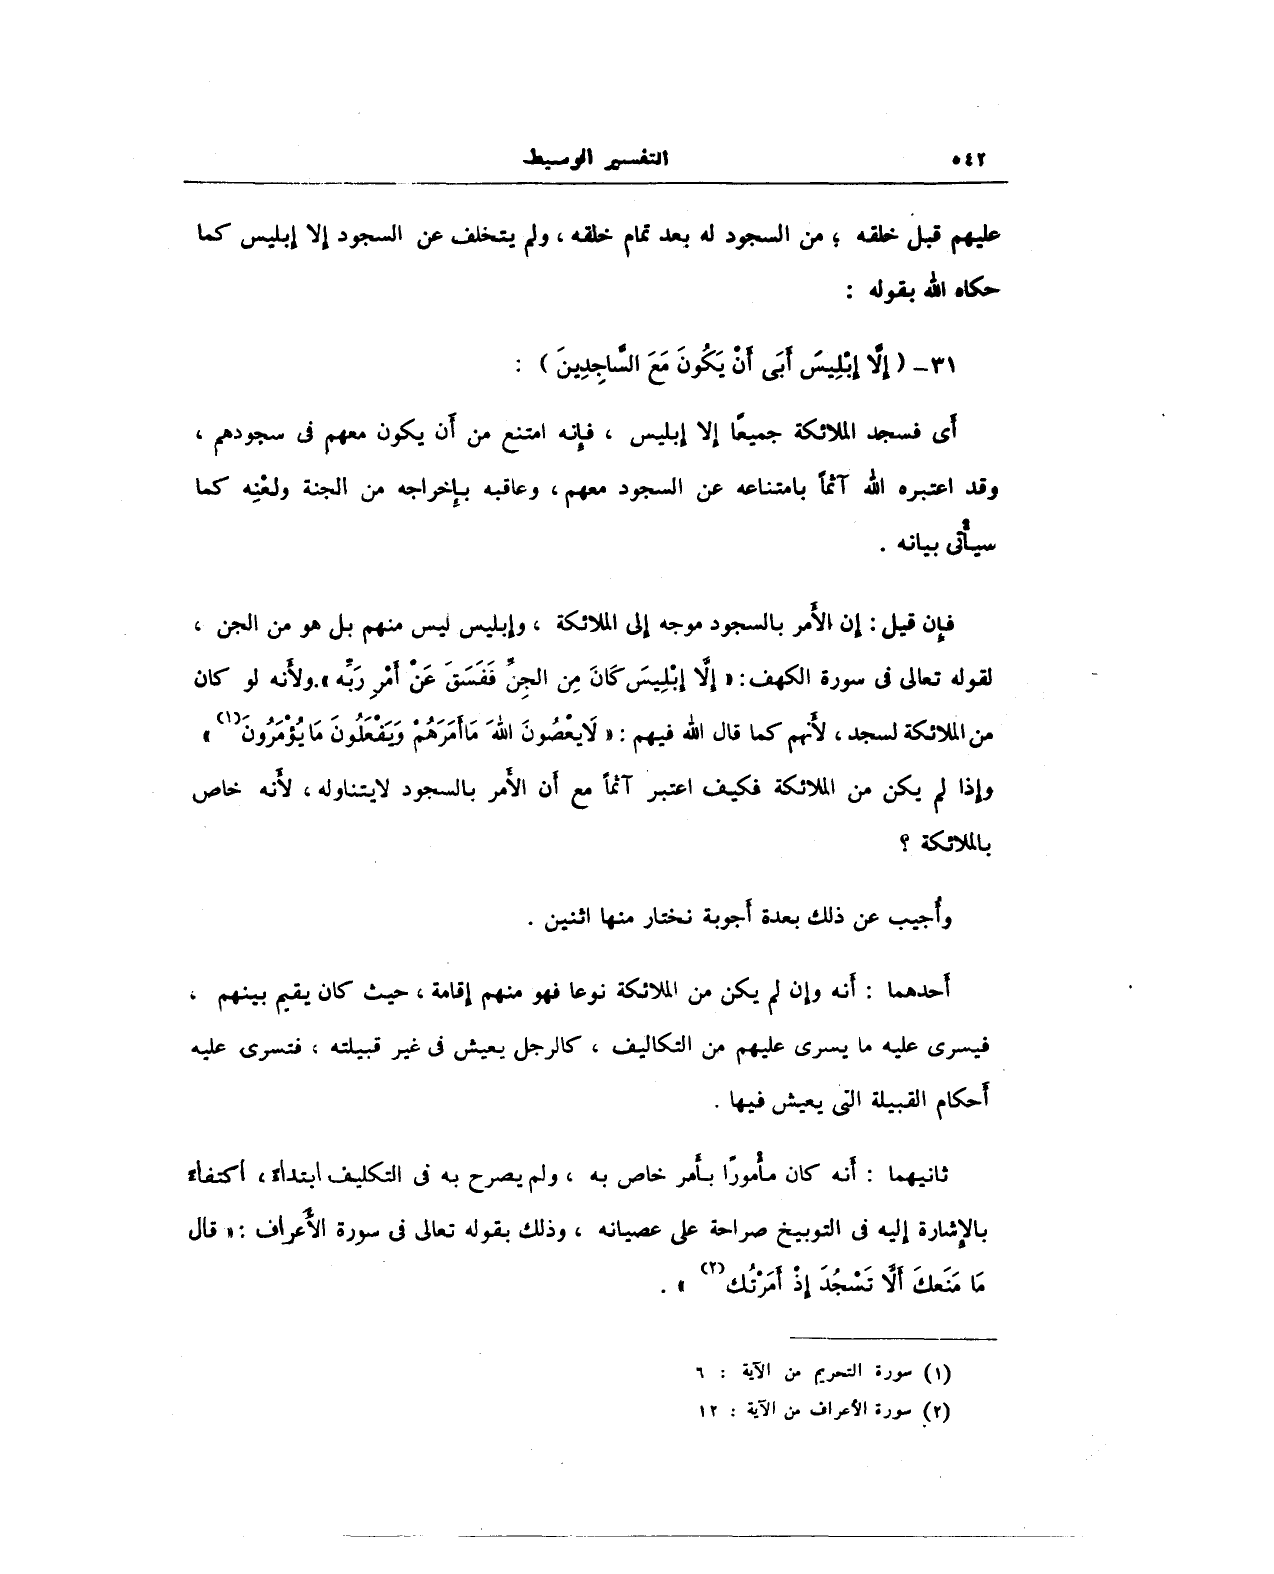 ٥٤٢ التفسير الوسيط
عليهم قبل خلقه ؛ من السجود له بعد تمام خلقه ، ولم يتخلف عن السجود إلا إبليس كما
حكاه الله بقوله :
٣١ـ ( إِلَّا إِبْلِيسَ أَبَى أَنْ يَكُونَ مَعَ السَّاجِدِينَ ) :
أى فسجد الملائكة جميعًا إلا إبليس ، فإنه امتنع من أن يكون معهم فى سجودهم ،
وقد اعتبره الله آثمًا بامتناعه عن السجود معهم ، وعاقبه بإخراجه من الجنة ولعْنِه كما
سيأْتى بيانه .
فإن قيل : إن الأَمر بالسجود موجه إلى الملائكة ، وإبليس ليس منهم بل هو من الجن ،
لقوله تعالى فى سورة الكهف : « إِلَّا إِبْلِيسَ كَانَ مِن الجِنِّ فَفَسَقَ عَنْ أَمْرِ رَبِّه » . ولأَنه لو كان
من الملائكة لسجد ، لأَنهم كما قال الله فيهم : « لَايَعْصُونَ اللهَ مَاأَمَرَهُمْ وَيَفْعَلُونَ مَا يُؤْمَرُونَ(١) »
وإذا لم يكن من الملائكة فكيف اعتبر آثمًا مع أن الأَمر بالسجود لايتناوله ، لأَنه خاص
بالملائكة ؟
وأُجيب عن ذلك بعدة أَجوبة نختار منها اثنين .
أَحدهما : أَنه وإن لم يكن من الملائكة نوعا فهو منهم إقامة ، حيث كان يقيم بينهم ،
فيسرى عليه ما يسرى عليهم من التكاليف ، كالرجل يعيش فى غير قبيلته ، فتسرى عليه
أَحكام القبيلة التى يعيش فيها .
ثانيهما : أَنه كان مأْمورًا بأَمر خاص به ، ولم يصرح به فى التكليف ابتداءً ، اكتفاءً
بالإشارة إليه فى التوبيخ صراحة على عصيانه ، وذلك بقوله تعالى فى سورة الأَعراف : « قال
مَا مَنَعكَ أَلَّا تَسْجُدَ إِذْ أَمَرْتُك(٢) » .
(١) سورة التحريم من الآية : ٦
(٢) سورة الأعراف من الآية : ١٢